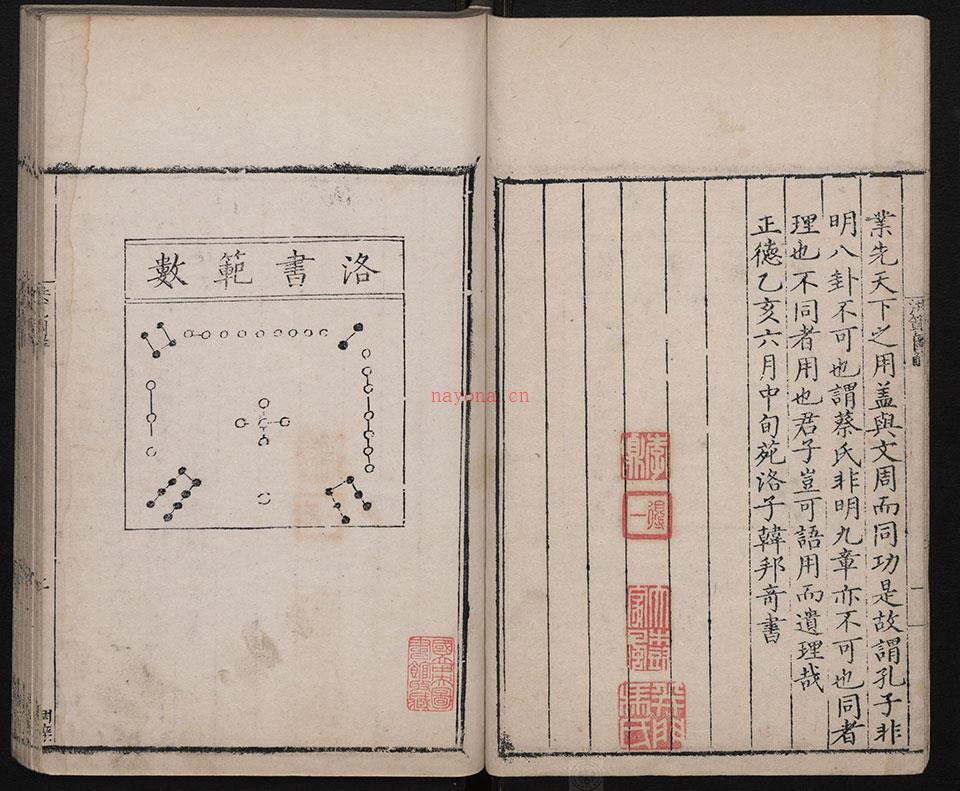 業先天下之用盖與文周而同功是故謂孔子非
明八卦不可也謂蔡氏非明九章亦不可也同者
理也不同者用也君子豈可語用而遺理哉
正德乙亥六月中旬苑洛子韓邦奇書
一
洛書範數
國立中央圖書館藏
nayona.cn